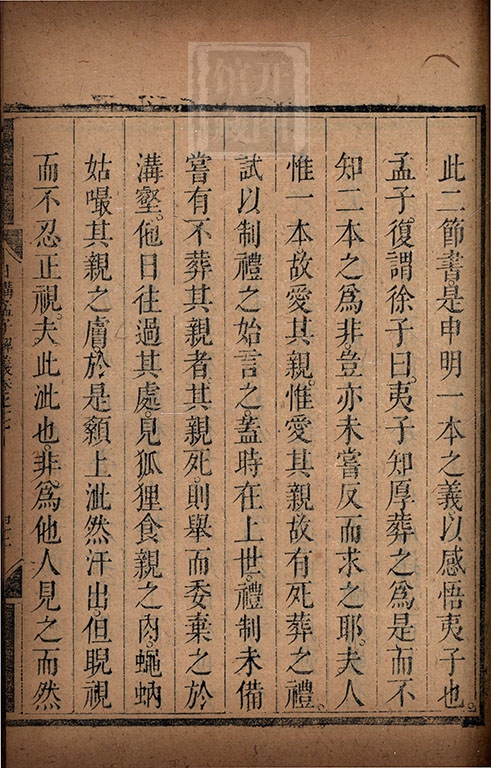 此二節書。是申明一本之義。以感悟夷子也
孟子。復謂徐子曰。夷子知厚葬之爲是。而不
知二本之爲非。豈亦未嘗反而求之耶。夫人
惟一本。故愛其親。惟愛其親。故有死葬之禮。
試以制禮之始言之。蓋時在上世。禮制未備
嘗有不葬其親者。其親死。則舉而委棄之於
溝壑。他日往過其處。見狐狸食親之肉。蠅蚋
姑嘬其親之膚。於是顙上泚然汗出。但睨視
而不忍正視。夫此泚也。非爲他人見之而然
日講孟子解義卷之